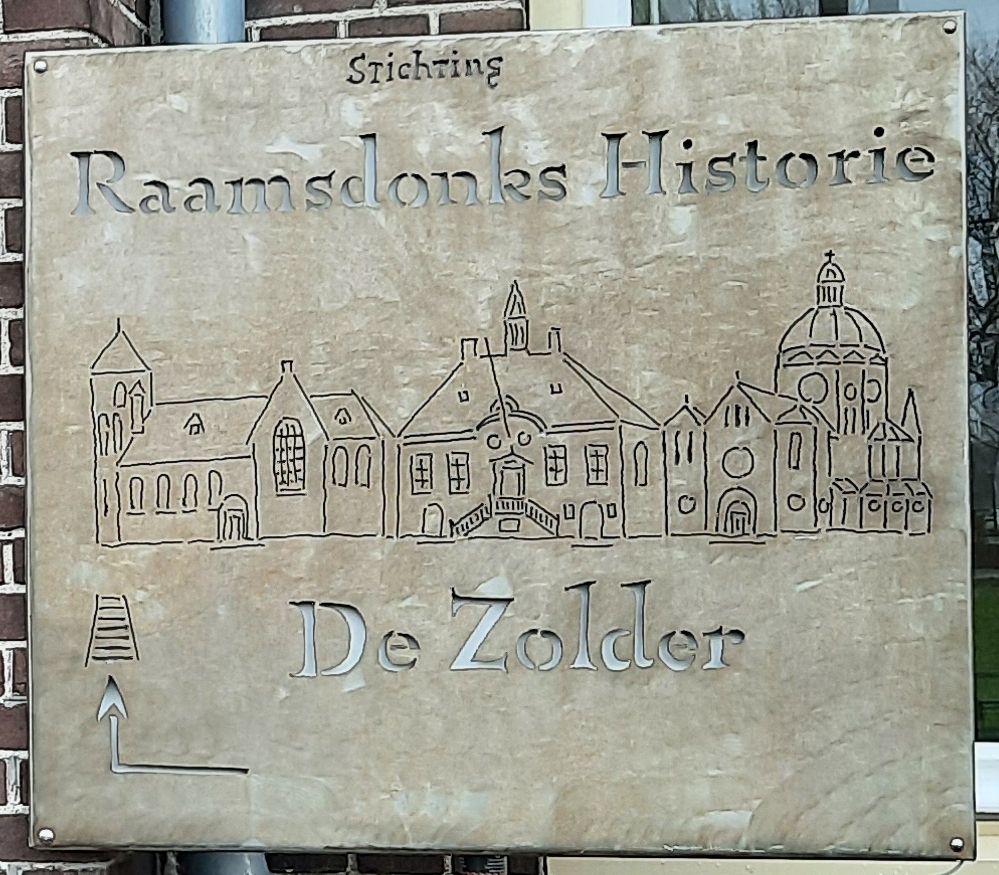 Stichting
Raamsdonks Historie
De Zolder